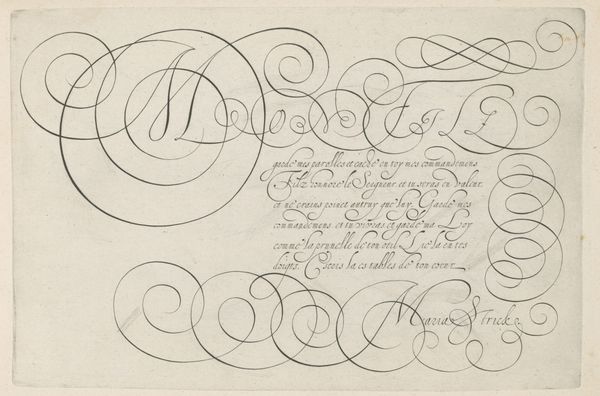 Mon Filz
garde mes parolles et cache en toy mes commandemens
Filz honnore le Seigneur et tu seras en valeur
et ne crains point autruy que luy. Garde mes
commandemens et tu vivras, et garde ma Loy
comme la prunelle de ton oeil. Lie la en tes
doigts. Escris la es tables de ton coeur
Maria Strick